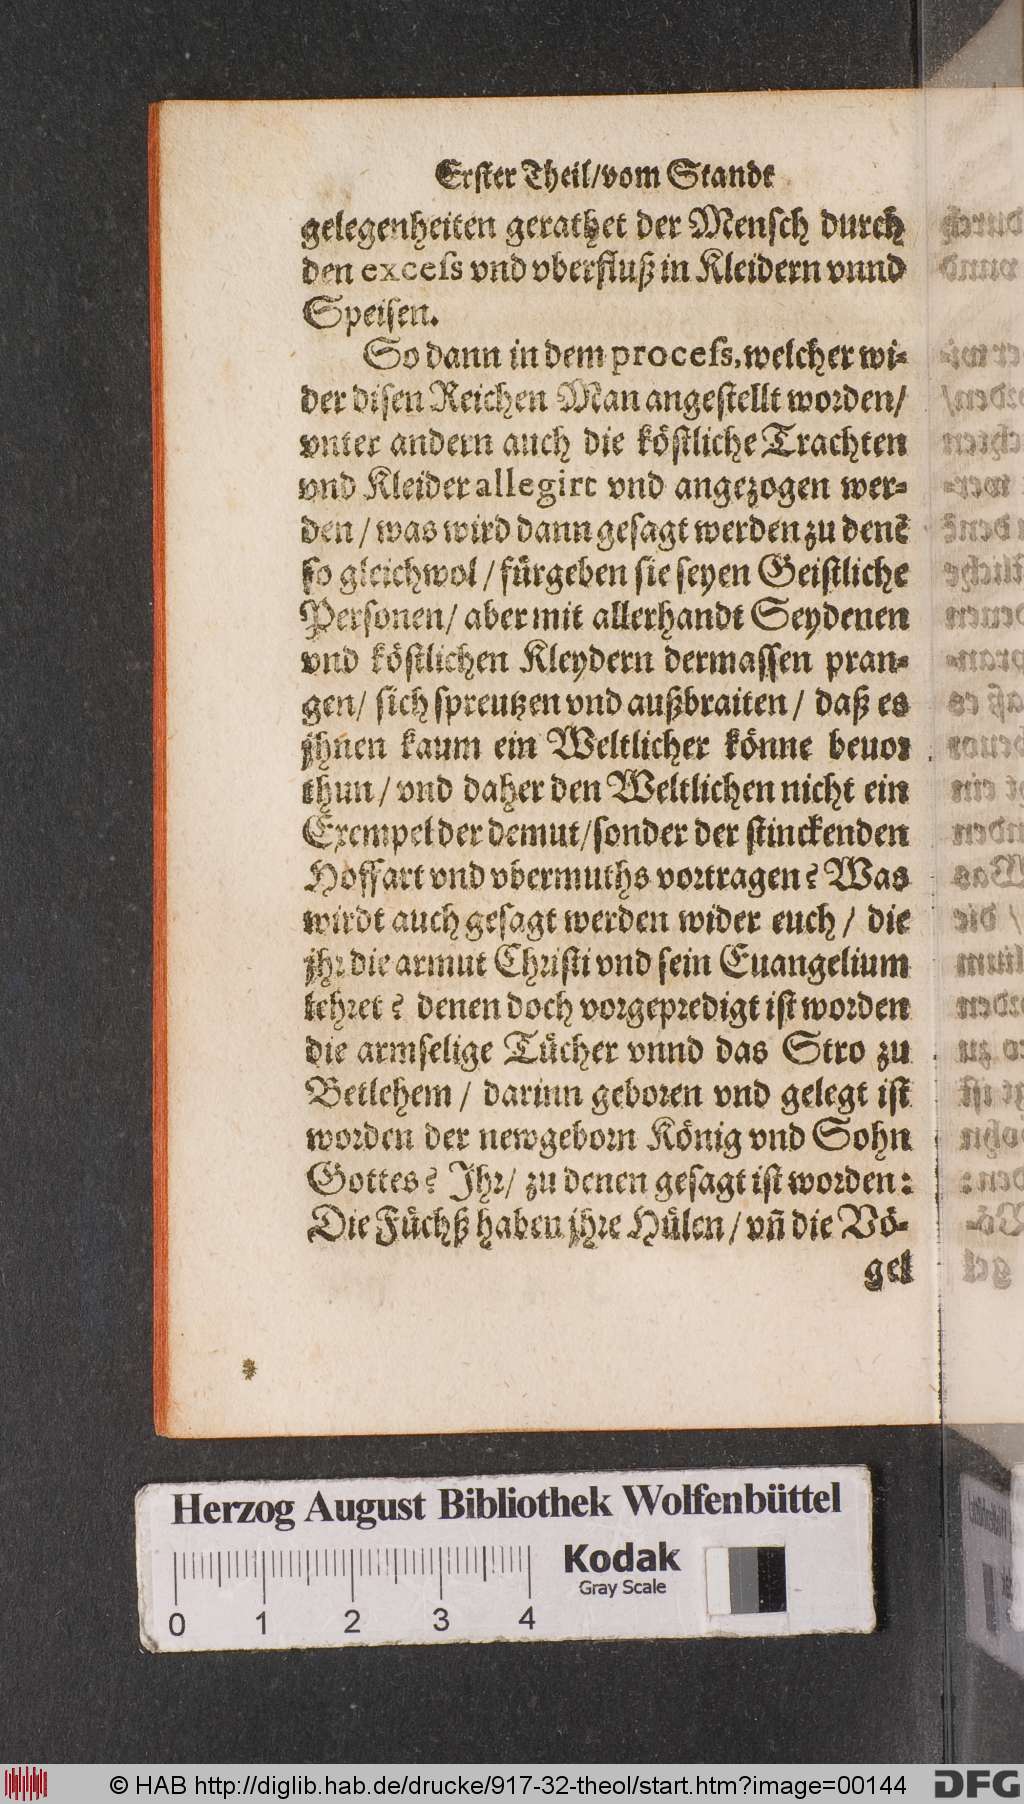 Erster Theil/vom Standt
gelegenheiten gerathet der Mensch durch
den excess vnd vberfluß in Kleidern vnnd
Speisen.
So dann in dem process, welcher wi-
der disen Reichen Man angestellt worden/
vnter andern auch die köstliche Trachten
vnd Kleider allegirt vnd angezogen wer-
den / was wird dann gesagt werden zu denẽ
so gleichwol / fürgeben sie seyen Geistliche
Personen/ aber mit allerhandt Seydenen
vnd köstlichen Kleydern dermassen pran-
gen/ sich spreutzen vnd außbraiten / daß es
jhnen kaum ein Weltlicher könne beuor
thun / vnd daher den Weltlichen nicht ein
Exempel der demut/sonder der stinckenden
Hoffart vnd vbermuths vortragen? Was
wirdt auch gesagt werden wider euch / die
jhr die armut Christi vnd sein Euangelium
lehret? denen doch vorgepredigt ist worden
die armselige Tücher vnnd das Stro zu
Betlehem / darinn geboren vnd gelegt ist
worden der newgeborn König vnd Sohn
Gottes? Ihr/ zu denen gesagt ist worden:
Die Füchß haben jhre Hülen / vñ die Vö-
gel
Herzog August Bibliothek Wolfenbüttel
Kodak
Gray Scale
0 1 2 3 4
© HAB http://diglib.hab.de/drucke/917-32-theol/start.htm?image=00144
DFG